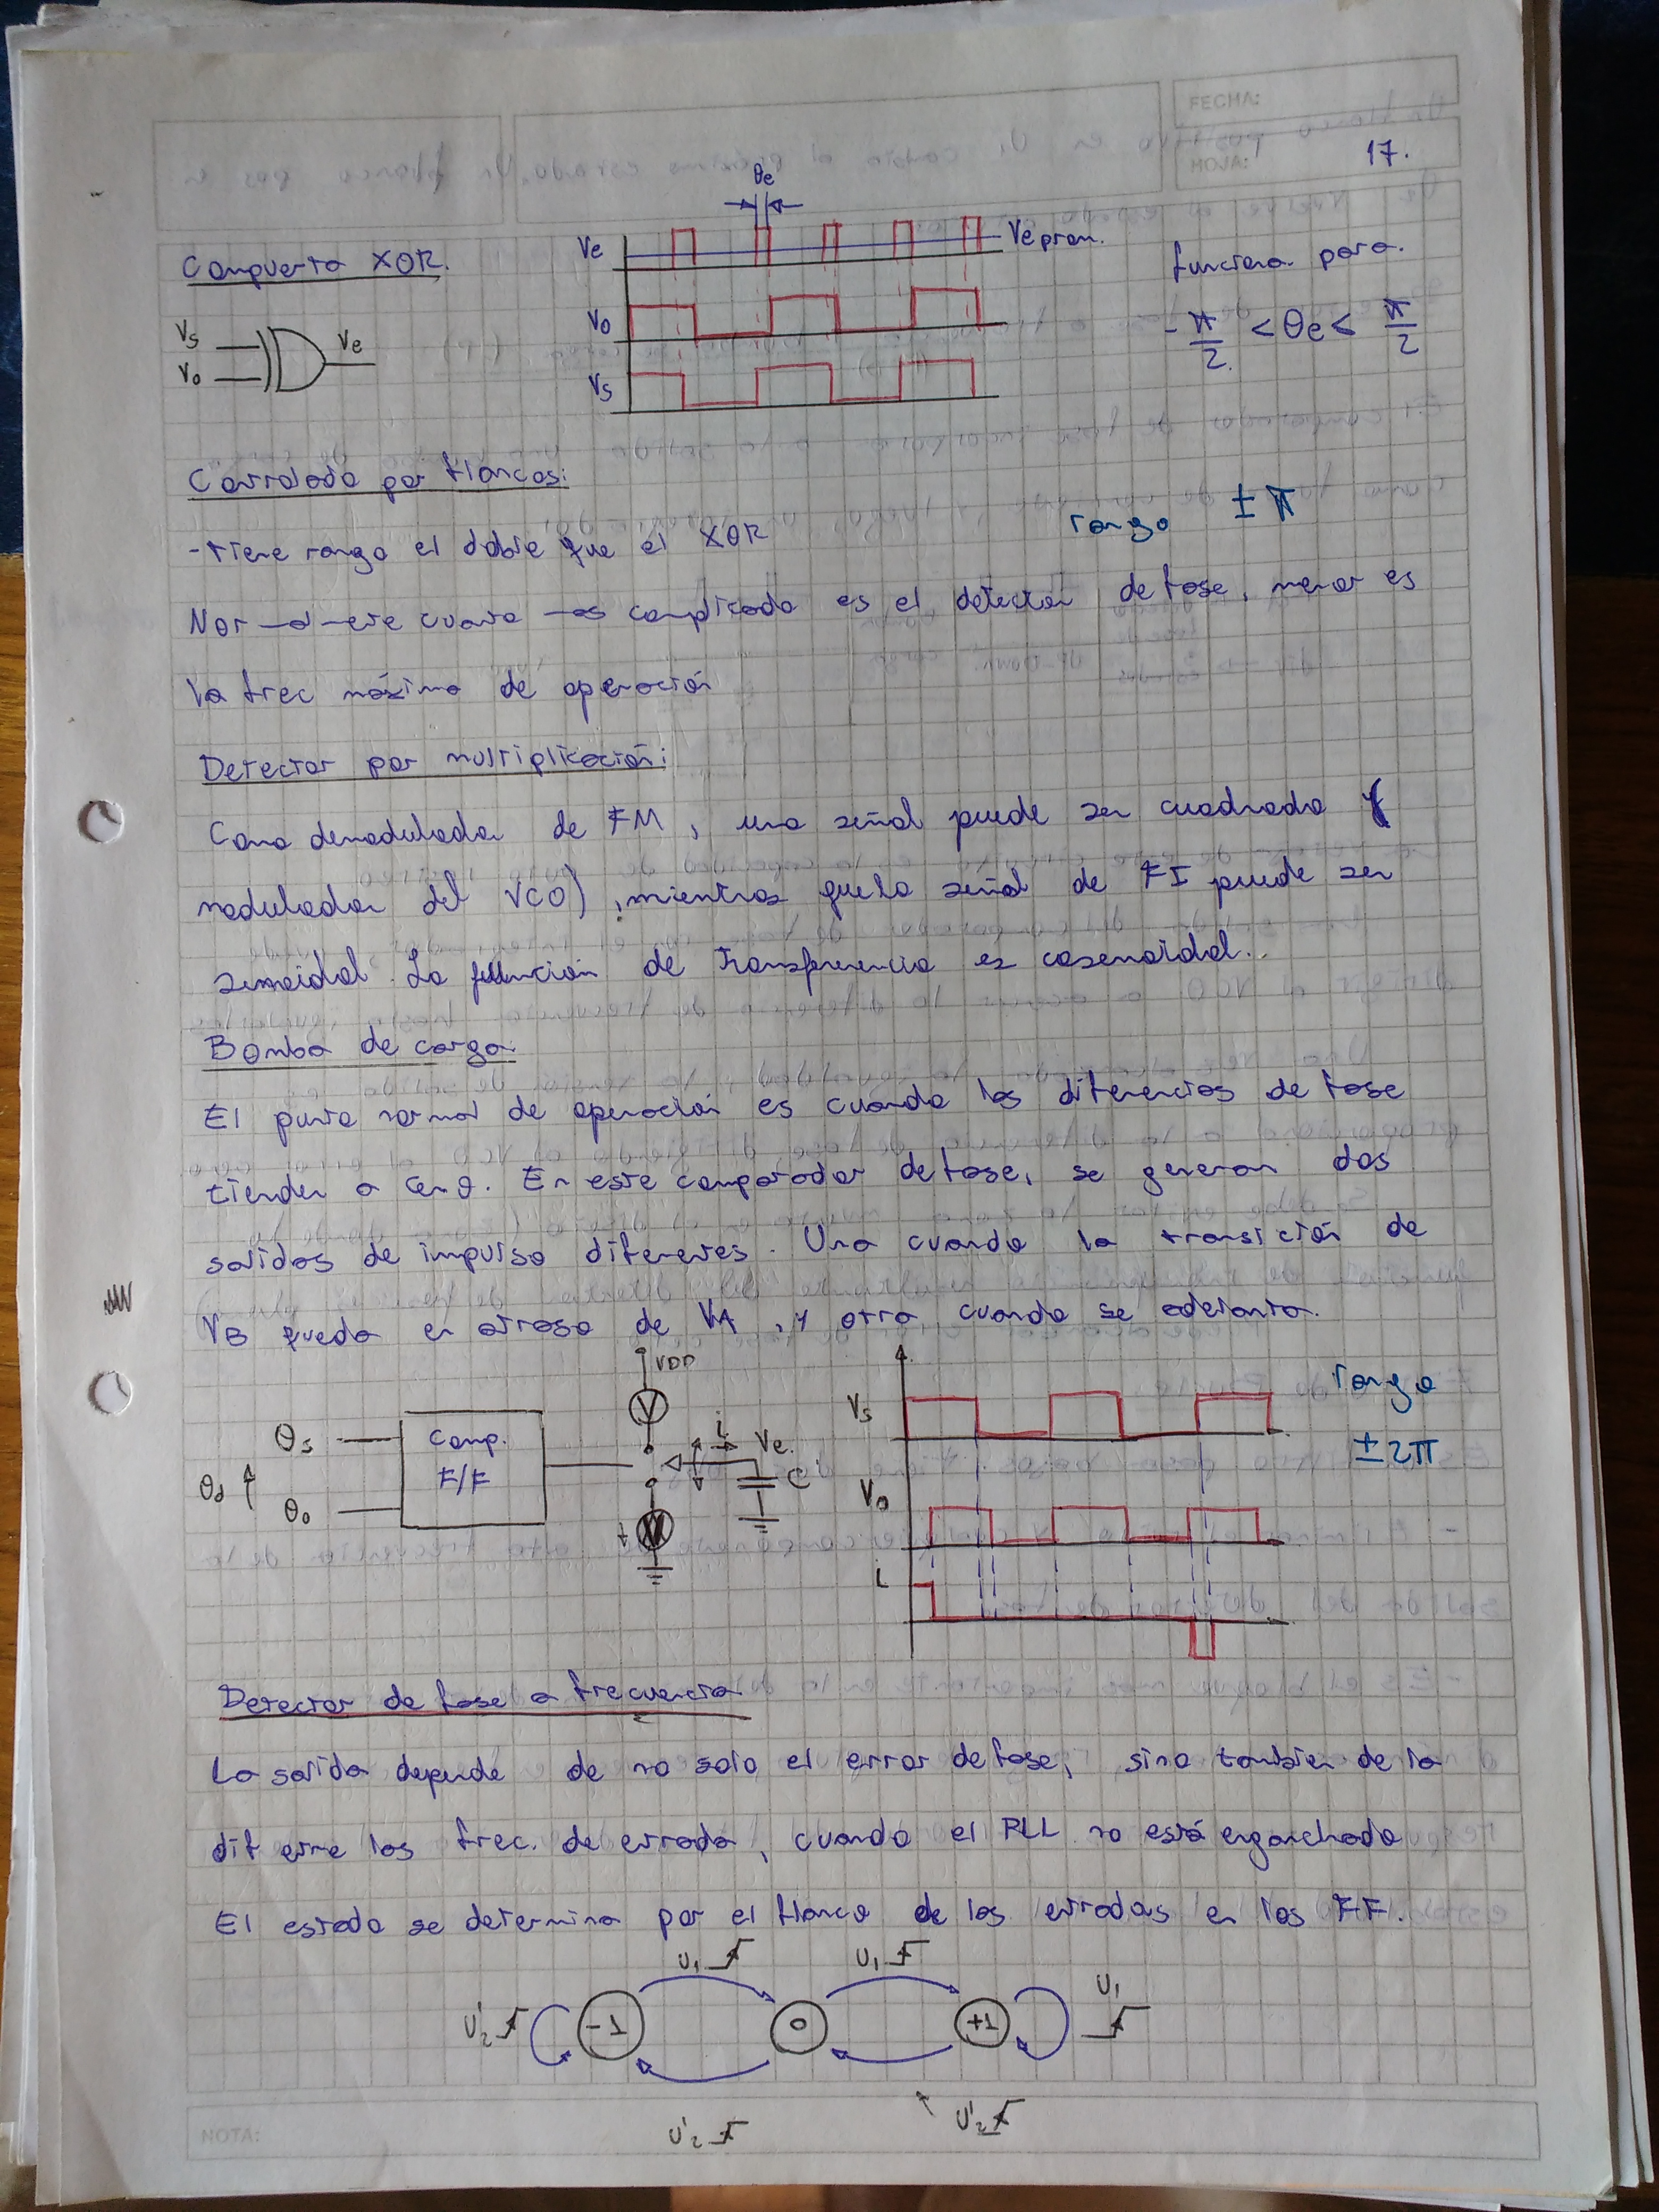 FECHA:
HOJA: 17.
θe
Compuerta XOR.
Ve
Ve prom.
funciona para.
Vs
Vo
Ve
Vo
Vs
- π/2 < θe < π/2
Controlado por flancos:
rango ± π
- tiene rango el doble que el XOR
complicado es el detector de fase, menor es
la frec máxima de operación
Detector por multiplicación:
Como demodulador de FM, una señal puede ser cuadrada
modulador del VCO), mientras que la señal de FI puede ser
senoidal. La función de transferencia es cosenoidal.
Bomba de carga:
El punto normal de operación es cuando las diferencias de fase
tienden a cero. En este comparador de fase, se generan dos
salidas de impulso diferentes. Una cuando la transición de
VB queda en atraso de VA, y otra cuando se adelanta.
VDD
V
i
Ve.
C
θs
θd
θo
Comp.
F/F
Vs
Vo
i
rango
± 2π
Detector de fase a frecuencia
La salida depende de no solo el error de fase, sino tambien de la
dif entre las frec. de entrada, cuando el PLL no está enganchado
El estado se determina por el flanco de las entradas en los FF.
U1
U1
U'2
-1
0
+1
U1
U'2
U'2
NOTA: